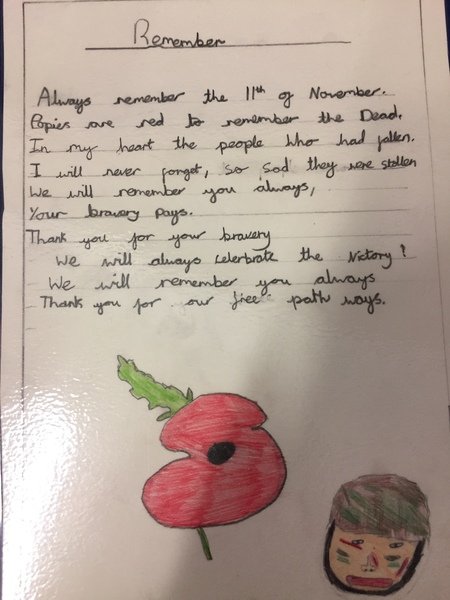 Remember
Always remember the 11th of November.
Popies are red to remember the Dead.
In my heart the people who had fallen.
I will never forget, so sad they were stollen
We will remember you always,
Your bravery pays.
Thank you for your bravery
We will always celerbrate the Victory!
We will remember you always
Thank you for our free path ways.